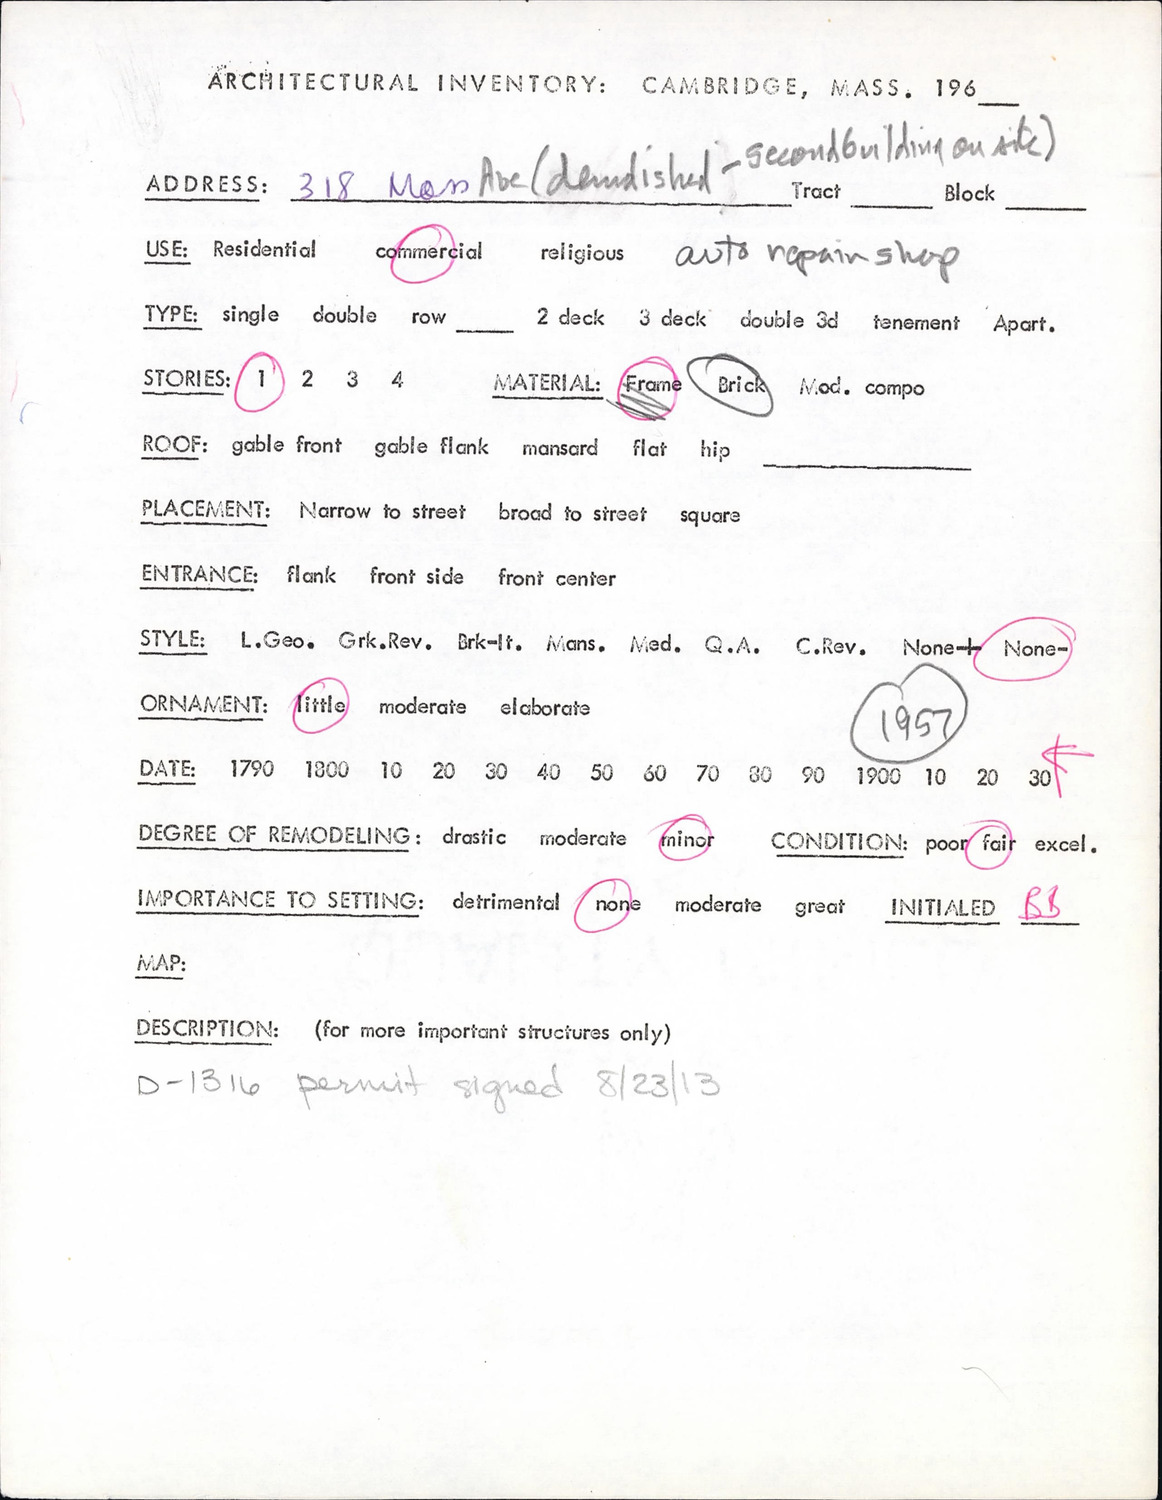 ARCHITECTURAL INVENTORY: CAMBRIDGE, MASS. 196__
ADDRESS: 318 Mass Ave (demolished - second building on site) Tract ____ Block ____
USE: Residential commercial religious auto repair shop
TYPE: single double row ____ 2 deck 3 deck double 3d tenement Apart.
STORIES: 1 2 3 4 MATERIAL: Frame Brick Mod. compo
ROOF: gable front gable flank mansard flat hip ____
PLACEMENT: Narrow to street broad to street square
ENTRANCE: flank front side front center
STYLE: L.Geo. Grk.Rev. Brk-It. Mans. Med. Q.A. C.Rev. None+ None-
ORNAMENT: little moderate elaborate 1957
DATE: 1790 1800 10 20 30 40 50 60 70 80 90 1900 10 20 30
DEGREE OF REMODELING: drastic moderate minor CONDITION: poor fair excel.
IMPORTANCE TO SETTING: detrimental none moderate great INITIALED BB
MAP:
DESCRIPTION: (for more important structures only)
D-1316 permit signed 8/23/13